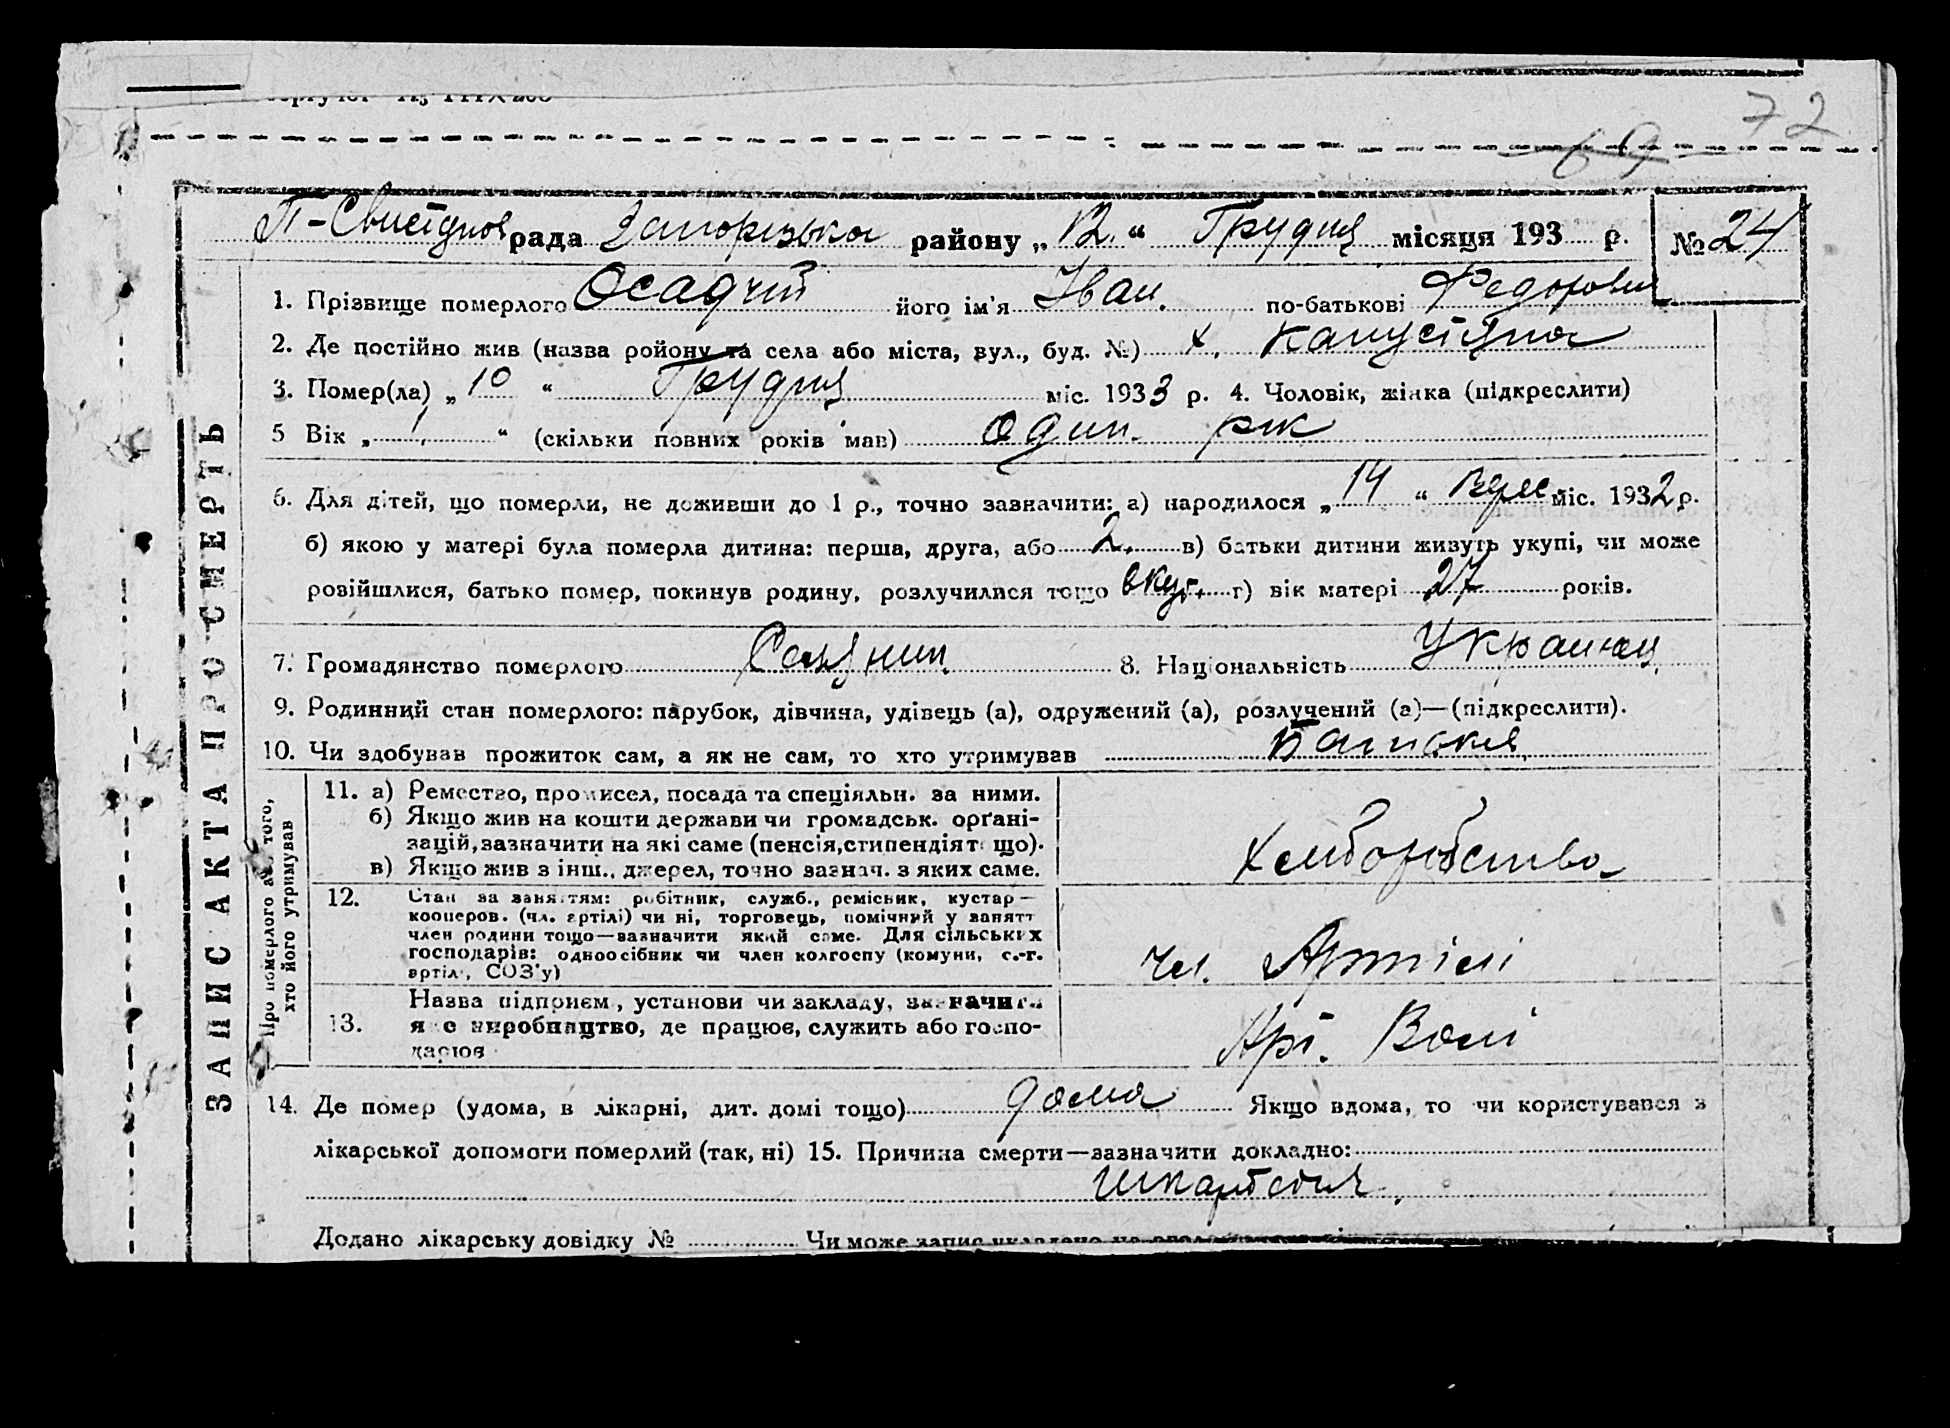 72
69
П-Свистунов рада Запорізька району „ 12 “ Грудня місяця 193 р. № 24
1. Прізвище померлого Осадчій його ім'я Іван. по-батькові Федорович
2. Де постійно жив (назва ройону та села або міста, вул., буд. №) х. Капустяна
3. Помер(ла) „ 10 “ Грудня міс. 1933 р. 4. Чоловік, жінка (підкреслити)
5 Вік „ 1 “ (скільки повних років мав) Один рік
6. Для дітей, що померли, не доживши до 1 р., точно зазначити: а) народилося „ 14 “ Верес міс. 1932 р.
б) якою у матері була померла дитина: перша, друга, або 2. в) батьки дитини живуть укупі, чи може
розійшлися, батько помер, покинув родину, розлучилися тощо вкуп. г) вік матері 27 років.
7. Громадянство померлого Селянин 8. Національність Украинец
9. Родинний стан померлого: парубок, дівчина, удівець (а), одружений (а), розлучений (а)—(підкреслити).
10. Чи здобував прожиток сам, а як не сам, то хто утримував Батьки
ЗАПИС АКТА ПРО СМЕРТЬ
Про померлого або того,
хто його утримував
11. а) Ремество, промисел, посада та спеціяльн. за ними.
б) Якщо жив на кошти держави чи громадськ. орґані-
зацій, зазначити на які саме (пенсія, стипендія т що).
в) Якщо жив з інш., джерел, точно зазнач. з яких саме.
Хлеборобство
12. Стан за заняттям: робітник, служб., реміcник, кустар—
кооперов. (чл. артілі) чи ні, торговець, помічний у занятт
член родини тощо—зазначити який саме. Для сільських
господарів: одноосібник чи член колгоспу (комуни, с.-г.
артілі, СОЗ'у)
чл. Артілі
13. Назва підприєм, установи чи закладу, зазначити
яке виробництво, де працює, служить або госпо-
дарює
Арт. Волі
14. Де помер (удома, в лікарні, дит. домі тощо) дома Якщо вдома, то чи користувався з
лікарської допомоги померлий (так, ні) 15. Причина смерти—зазначити докладно:
Додано лікарську довідку № Чи може запис укладено на